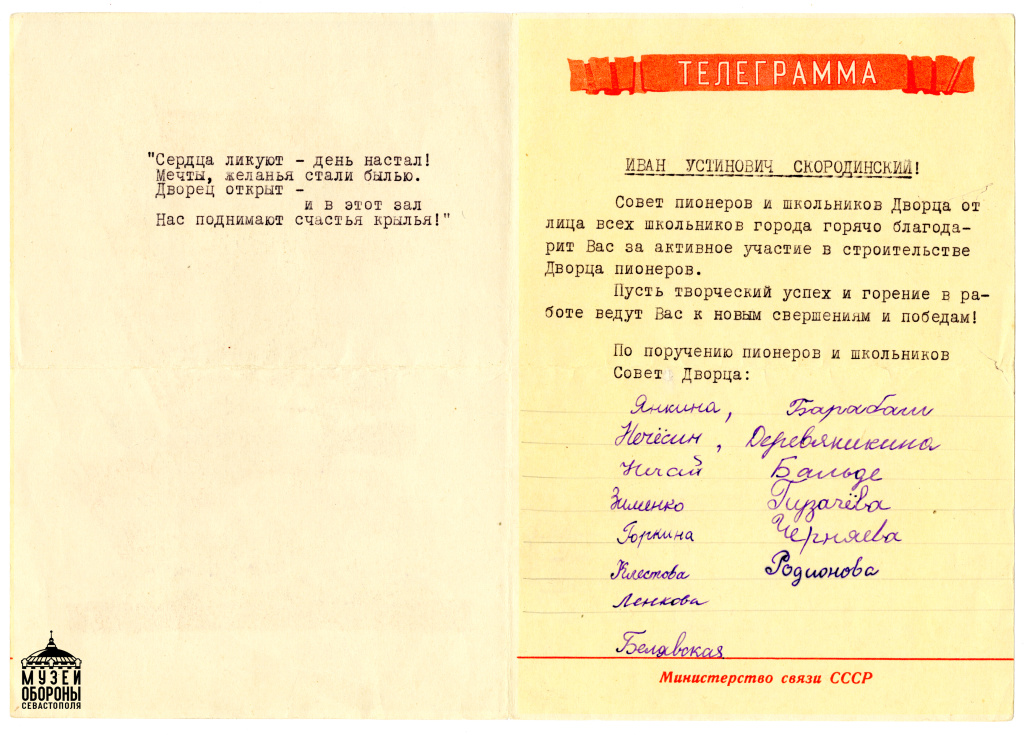 "Сердца ликуют - день настал!
Мечты, желанья стали былью.
Дворец открыт -
и в этот зал
Нас поднимают счастья крылья!"
ТЕЛЕГРАММА
ИВАН УСТИНОВИЧ СКОРОДИНСКИЙ!
Совет пионеров и школьников Дворца от
лица всех школьников города горячо благода-
рит Вас за активное участие в строительстве
Дворца пионеров.
Пусть творческий успех и горение в ра-
боте ведут Вас к новым свершениям и победам!
По поручению пионеров и школьников
Совет Дворца:
Янкина, Барабаш
Нечёсин, Деревяникина
Нечай Бальде
Зименко Пузачёва
Горкина Черняева
Клестова Родионова
Ленкова
Белявская
Министерство связи СССР
МУЗЕЙ
ОБОРОНЫ
СЕВАСТОПОЛЯ